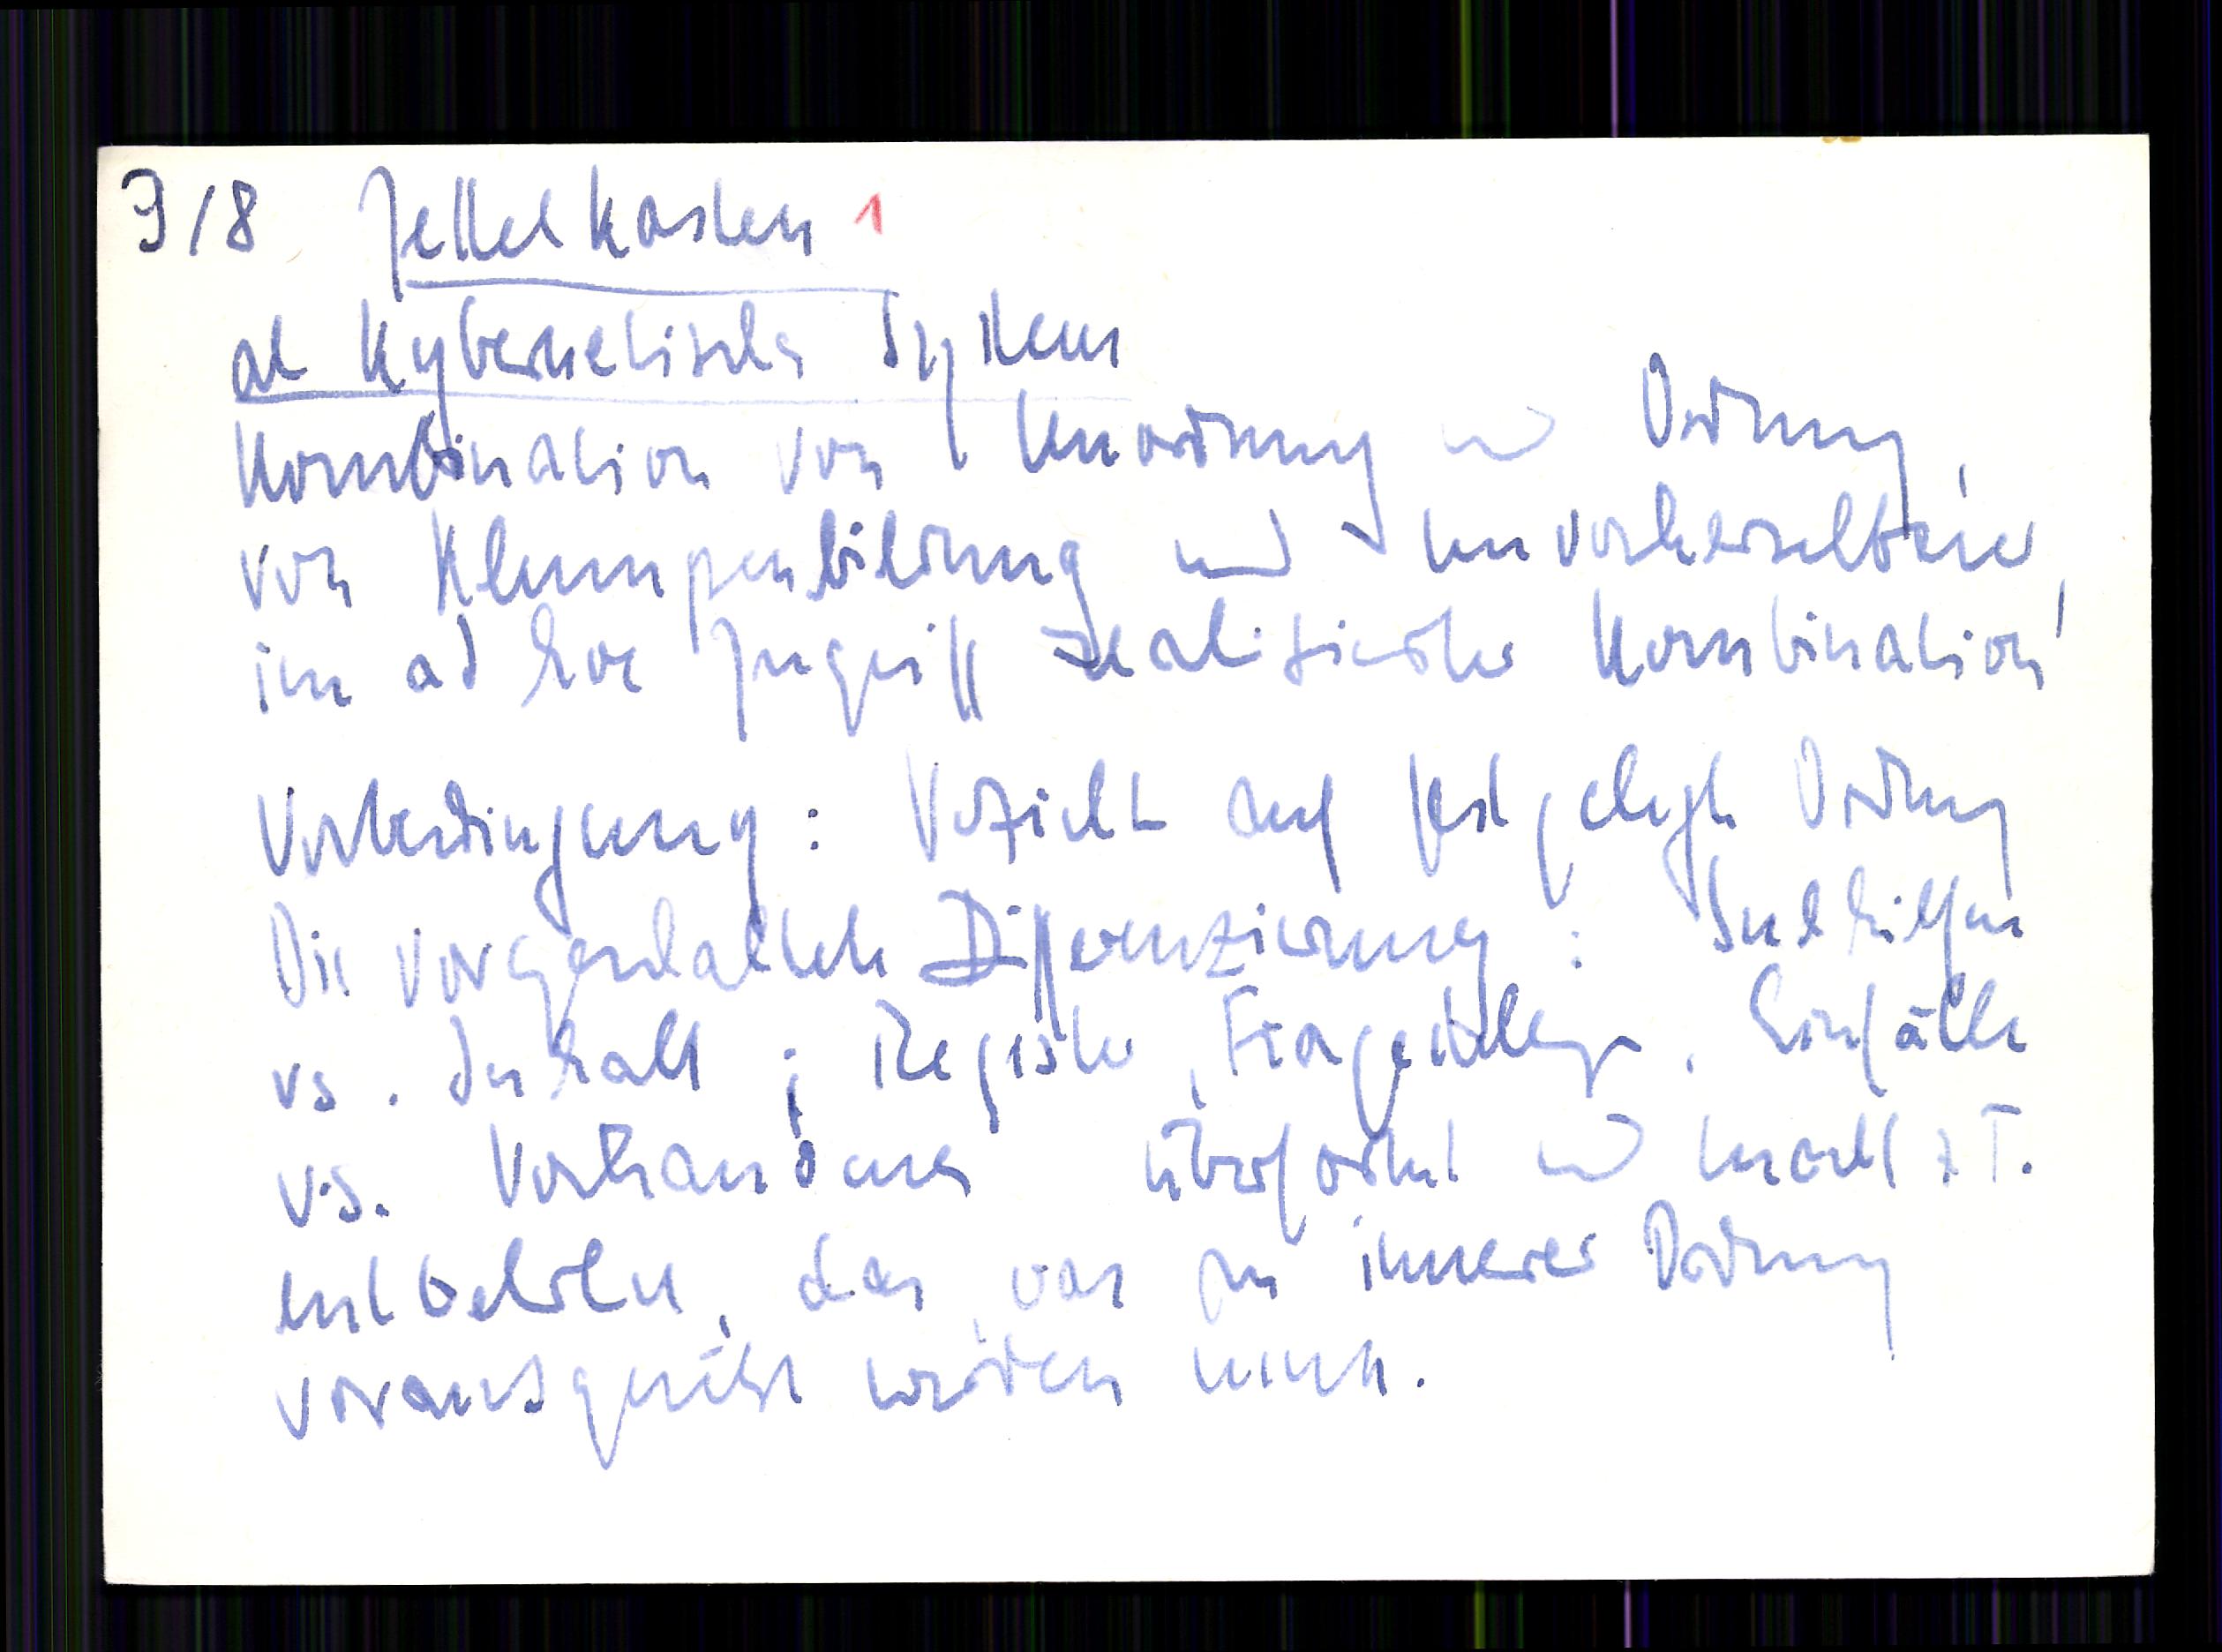 9/8 Zettelkasten 1
als kybernetisches System
Kombination von Unordnung und Ordnung,
von Klumpenbildung und unvorhersehbarer,
im ad hoc Zugriff realisierter Kombination
Vorbedingung: Verzicht auf festgelegte Ordnung
Die vorgeschaltete Differenzierung: Suchhilfen
vs. Inhalt; Register, Fragestellungen, Einfälle
vs. Vorhandenes überformt und macht z.T.
entbehrlich, das, was an innerer Ordnung
vorausgesetzt werden muß.